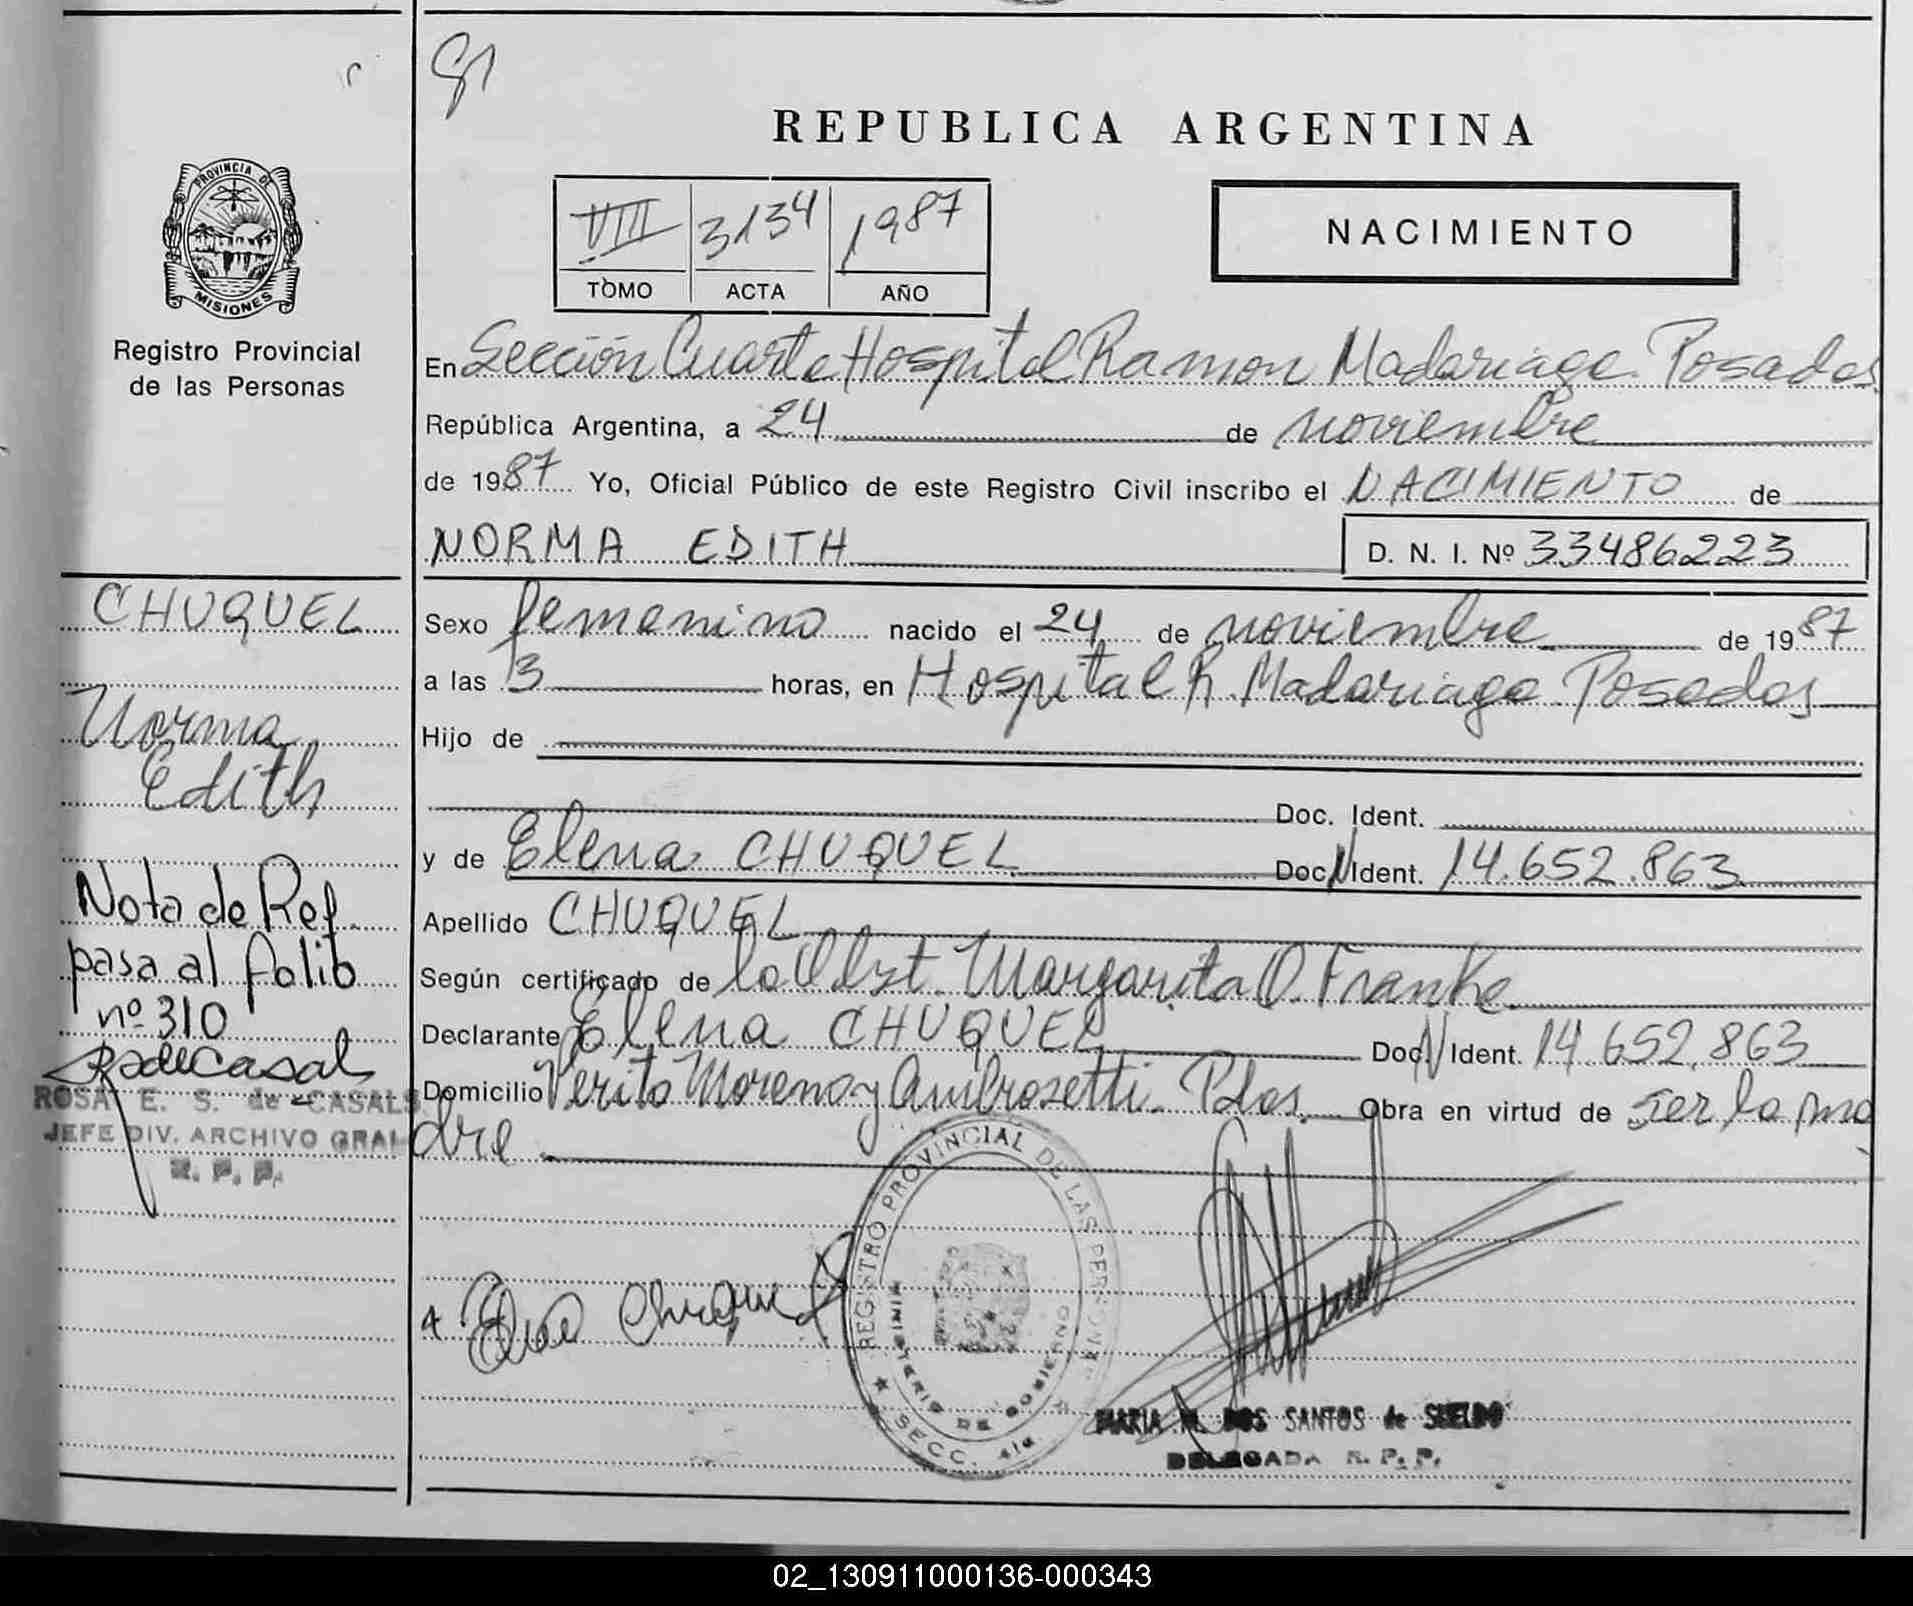 81
REPUBLICA ARGENTINA
PROVINCIA DE
MISIONES
Registro Provincial
de las Personas
VIII 3134 1987
TOMO ACTA AÑO
NACIMIENTO
En Sección Cuarta Hospital Ramon Madariaga. Posadas
República Argentina, a 24 de noviembre
de 1987 Yo, Oficial Público de este Registro Civil inscribo el NACIMIENTO de
NORMA EDITH D. N. I. Nº 33486223
Sexo femenino nacido el 24 de noviembre de 1987
a las 3 horas, en Hospital R. Madariaga. Posadas
Hijo de
Doc. Ident.
y de Elena CHUQUEL Doc. N Ident. 14.652.863
Apellido CHUQUEL
Según certificado de la Obst. Margarita O. Franke
Declarante Elena CHUQUEL Doc. N Ident. 14.652.863
Domicilio Moreno y Ambrosetti. Pdas. Obra en virtud de ser la ma
dre
CHUQUEL
Norma
Edith
Nota de Ref.
pasa al folio
nº 310
ROSA E. S. de CASALS
JEFE DIV. ARCHIVO GRAL
R. P. P.
REGISTRO PROVINCIAL DE LAS PERSONAS
MINISTERIO DE GOBIERNO
SECC. 4ta.
MARIA M. DOS SANTOS de SUELDO
DELEGADA R. P. P.
02_130911000136-000343